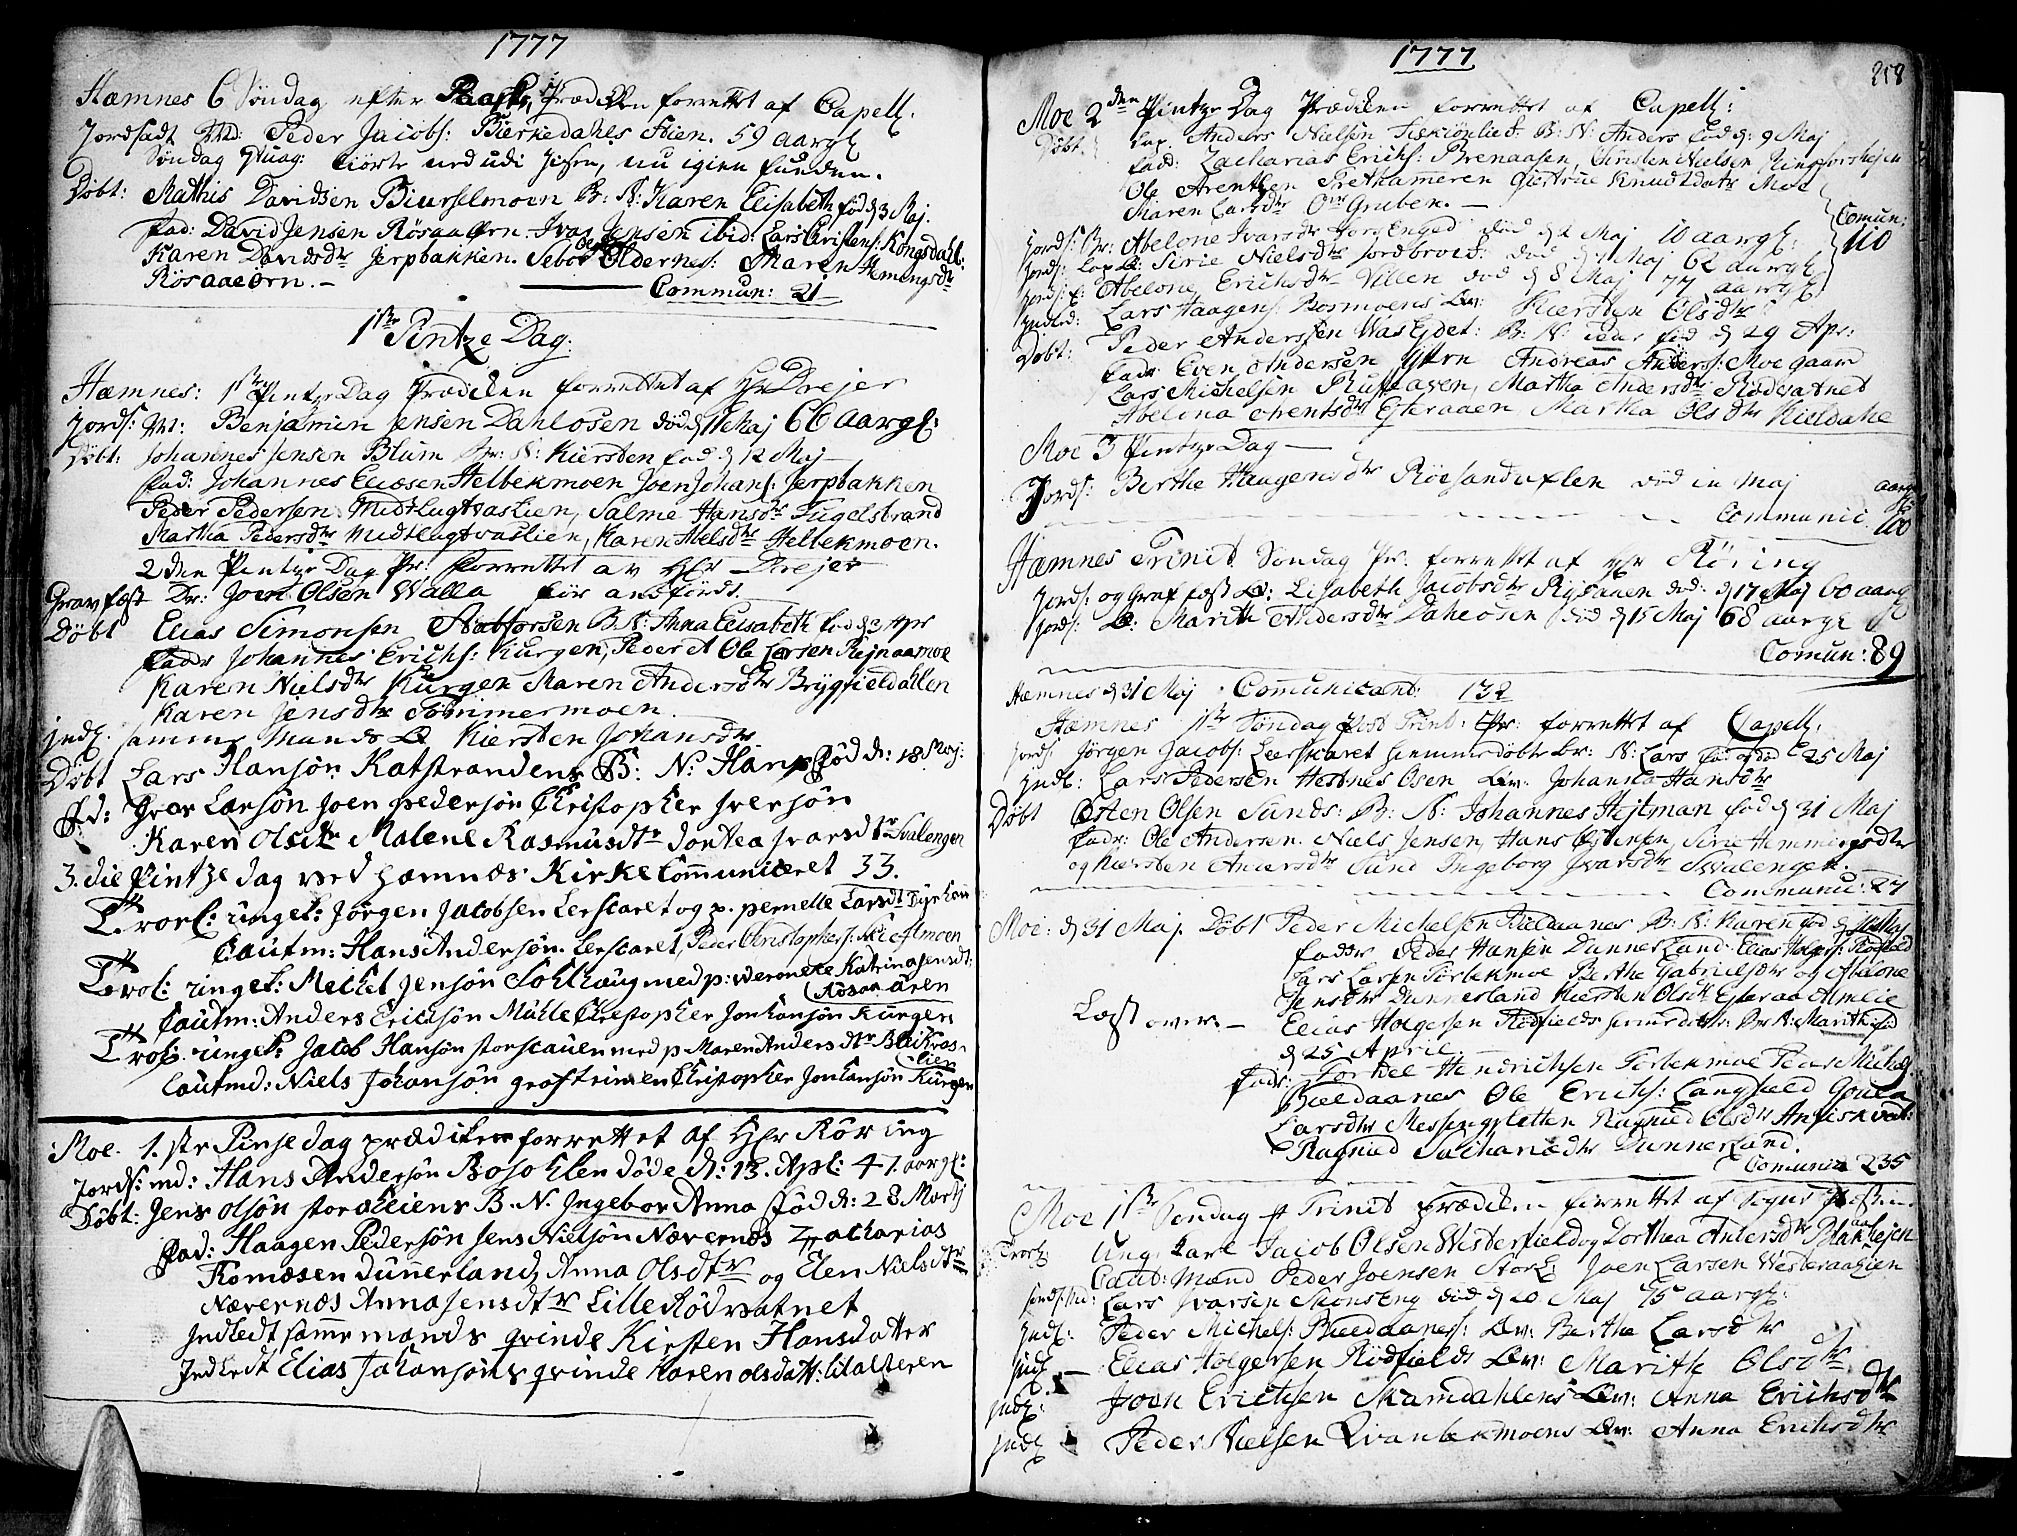 1777
Hæmnes 6 Søndag efter Paaske, Prædiken forrettet af Capell:
Jordfæst M: Peder Jacobs: Bierkedahls Søen. 59 aargl
Søndag 7tuag: kiørte ned udi Jisen, nu igien funden.
Døbt: Mathis Davidsen Biurselmoen B: N: Karen Elisabeth fød d 3 Maj.
Fad: David Jensen Røsaaørn. Ivar Jensen ibid: Lars Christens: Kongsdahl:
Karen Davidsdtr Jerpbakken. Sebor Oldernes: Maren Hemingsdtr
Røsaaeørn.
Commun: 21
1ste Pintze Dag:
Hæmnes: 1ste Pintze Dag Prædiken forrettet af Hr Drejer
Jords: M: Benjamin Jensen Dahlosen død d 11 Maj 66 aargl:
Døbt: Johannes Jensen Blum Br: N: Kiersten fød d 12 Maj
Fad: Johannes Eliæsen Helbekmoen Joen Johans: Jerpbakken
Peder Pedersen Midtlugtvaslien, Salme Hansdtr Fugelstrand
Martha Pedersdtr Midtlugtvaslien, Karen Abelsdtr Helbekmoen.
2den Pintze Dag Pr: forrettet av Hr Drejer
Gravfæst Dr: Joen Olsen Walla før anført.
Døbt Elias Simonsen Stabforsen B N: Anna Elisabeth fød d 3 Apr
Faddr Johannes Erichs: Kurgen, Peder et Ole Larsen Rejnaamoe
Karen Nielsdtr Kurgen Maren Andersdtr Brygfieldahlen
Karen Jensdtr Tømmermoen.
Jndl: samme Mands Q Kiersten Johansdtr
Døbt Lars Hansøn Katstrandens B: N: Hans fød d: 18 Maj:
Fd: Iver Larsøn Joen pedersøn Christopher Iversøn
Karen Olsdtr Malene Rasmusdtr Dortea Ivarsdtr Svalengen
3. die Pintze dag ved Hæmnæs Kirke Communiceret 33.
Trol: unget: Jørgen Jacobsen Lerscaret og p. pernelle Larsdtr Dyrhau
Cautm: Hans Andersøn. Lerscaret, Peder Christophers:
Trol: ungek: Michel Jensøn Solhaug med p: Weroneke Katrina Jensdt:
Røsaa Øren
Cautm: Anders Erichsøn Mulle Christopher Jonhansøn Kurgen
Trol: ungek: Jacob Hansøn storscauen med p Maren Anders dtr Bleikvas-
lien
Cautmd: Niels Johansøn grostrimlen Christopher Jonhansøn Kurgen
Moe. 1. ste Pinse dag prædiken forrettet af Hr Røring
Jords: md: Hans Andersøn Bosoklen døde d: 13. Apl: 47. aargl:
Døbt: Jens Olsøn storæliens B. N. Ingebor Anna fød d: 28 Martj
Fad: Haagen Pedersøn Jens Nielsøn Nævernæs Zacharias
Tomæsen Dunnerland, Anna Olsdtr og Elen Nielsdtr
Næverneds Anna Jensdtr Lille Rødvatnet
Indledt samme mands qvinde Kirsten Hansdatter
Indledt Elias Johansøns qvinde Karen olsdatt: litalteren
1777
218
Moe 2den Pintze Dag Prædiken forrettet af Capell:
Døbt: Lap. Anders Nielsen B: N: Anders fød d: 9 Maj
Fad: Zacharias Erichs: Brenaasen, Kristen Nielsen
Ole Arentsen Trethammeren Giertrue Knudsdatr Moe
Maren Larsdtr Ovr Gruben.
Comun:
110
Jords: Br: Abelone Ivarsdtr død d 2 Maj 10 aargl:
Jord: Lap Q: Sirie Nielsdtr død d 7 Maj 62 aargl
Jords: E: Abelone Erichsdtr Villen død d 8 Maj 77 aargl
Jndled: Lars Haagens: Bosmoens Qv: Kiersten Olsdtr
Døbt: Peder Anderssen Was Ejdet: B: N: fød d 29 Apr:
Fadr Even Andersen Ytren Andreas Anders: Moe gaard
Lars Michelsen Rufsaasen, Martha Andersdtr Rødvatnet
Abelona Arentsdtr Ejteraaen Martha Olsdtr Kieldahl
Moe 3 Pintze Dag
Jords: Berthe Haagensdtr Røesanduflen død in Maj aargl
Communic: 100
Hæmnes Trinit Søndag Pr. forrettet af Hr Røring
Jords: og Graffæst Q: Lisabeth Jacobsdtr Rysauen død: d 17 Maj 60 aargl
Jords: Q: Marith Andersdtr Dahlosen død d 15 Maj 68 aargl
Comun: 89
Hæmnes d 31 Maj Communicant: 132
Hæmnes 1ste Søndag post Trint: Pr: forrettet af Capell.
Jords Jørgen Jacobs: Leerskaret hjemmedøbte Br: N: Lars fød og død 25 Maj
Jndl: Lars Pedersen Hestnes Osen Qv: Johanna Hansdtr
Døbt Østen Olsen Sunds: B: N: Johannes Hejtman fød d 31 Maj
Fadr: Ole Andersen. Niels Jensen, Hans Østensen, Sirie Hemmingsdtr
og Kiersten Andersdtr Sund Ingeborg Ivarsdtr Svalenget.
Communic: 27
Moe: d 31 Maj. Døbt Peder Michelsen Bieldaanes B: N: Karen fød d Maj
Faddr Peder Hansen Dunnerland Elias Holgers: Rødfield
Lars Larsen Tørbekmoe Berthe Gabrielsdtr og Abelone
Jensdtr Dunnerland Kiersten Olsdtr Ejteraa Amlie
Læst over: — Elias Holgersen Rødfields hiemedøbte: Br N: Marith fød
d 25 April
Fadr: Torkel Hendrichsen Tørbekmoe Peder Michels
Bieldaanes Ole Erichs: Langfield Goura
Larsdtr Messingsletten Ragnild Olsdtr Anfiskvat:
Ragnild Zachariædtr Dunnerland.
Comunic 235
Moe 1ste Søndag p Trinit prædiken forrettet af Sogne Præsten.
Trol: Ung Karl Jacob Olsen Westerfield og Dorthea Andersdtr Blakhejen
Caut: Mænd Peder Joensen Storl: Joen Larsen Westeraalien
Jords: Md: Lars Ivarsen Skonseng død d 20 Maj 75 aargl:
Jndl: Peder Michels: Bieldaanes: Qv: Berthe Larsdtr
Jndl — Elias Holgersen Rødfields Qv: Marith Olsdtr
Jndl: Joen Erichsen Skamdahlens Qv: Anna Erichsdtr
Jndl Peder Nielsen Qvanbekmoens Qv: Anna Erichsdtr